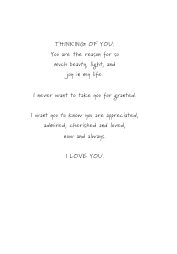 THINKING OF YOU.
You are the reason for so
much beauty, light, and
joy in my life.
I never want to take you for granted.
I want you to know you are appreciated,
admired, cherished and loved,
now and always.
I LOVE YOU.